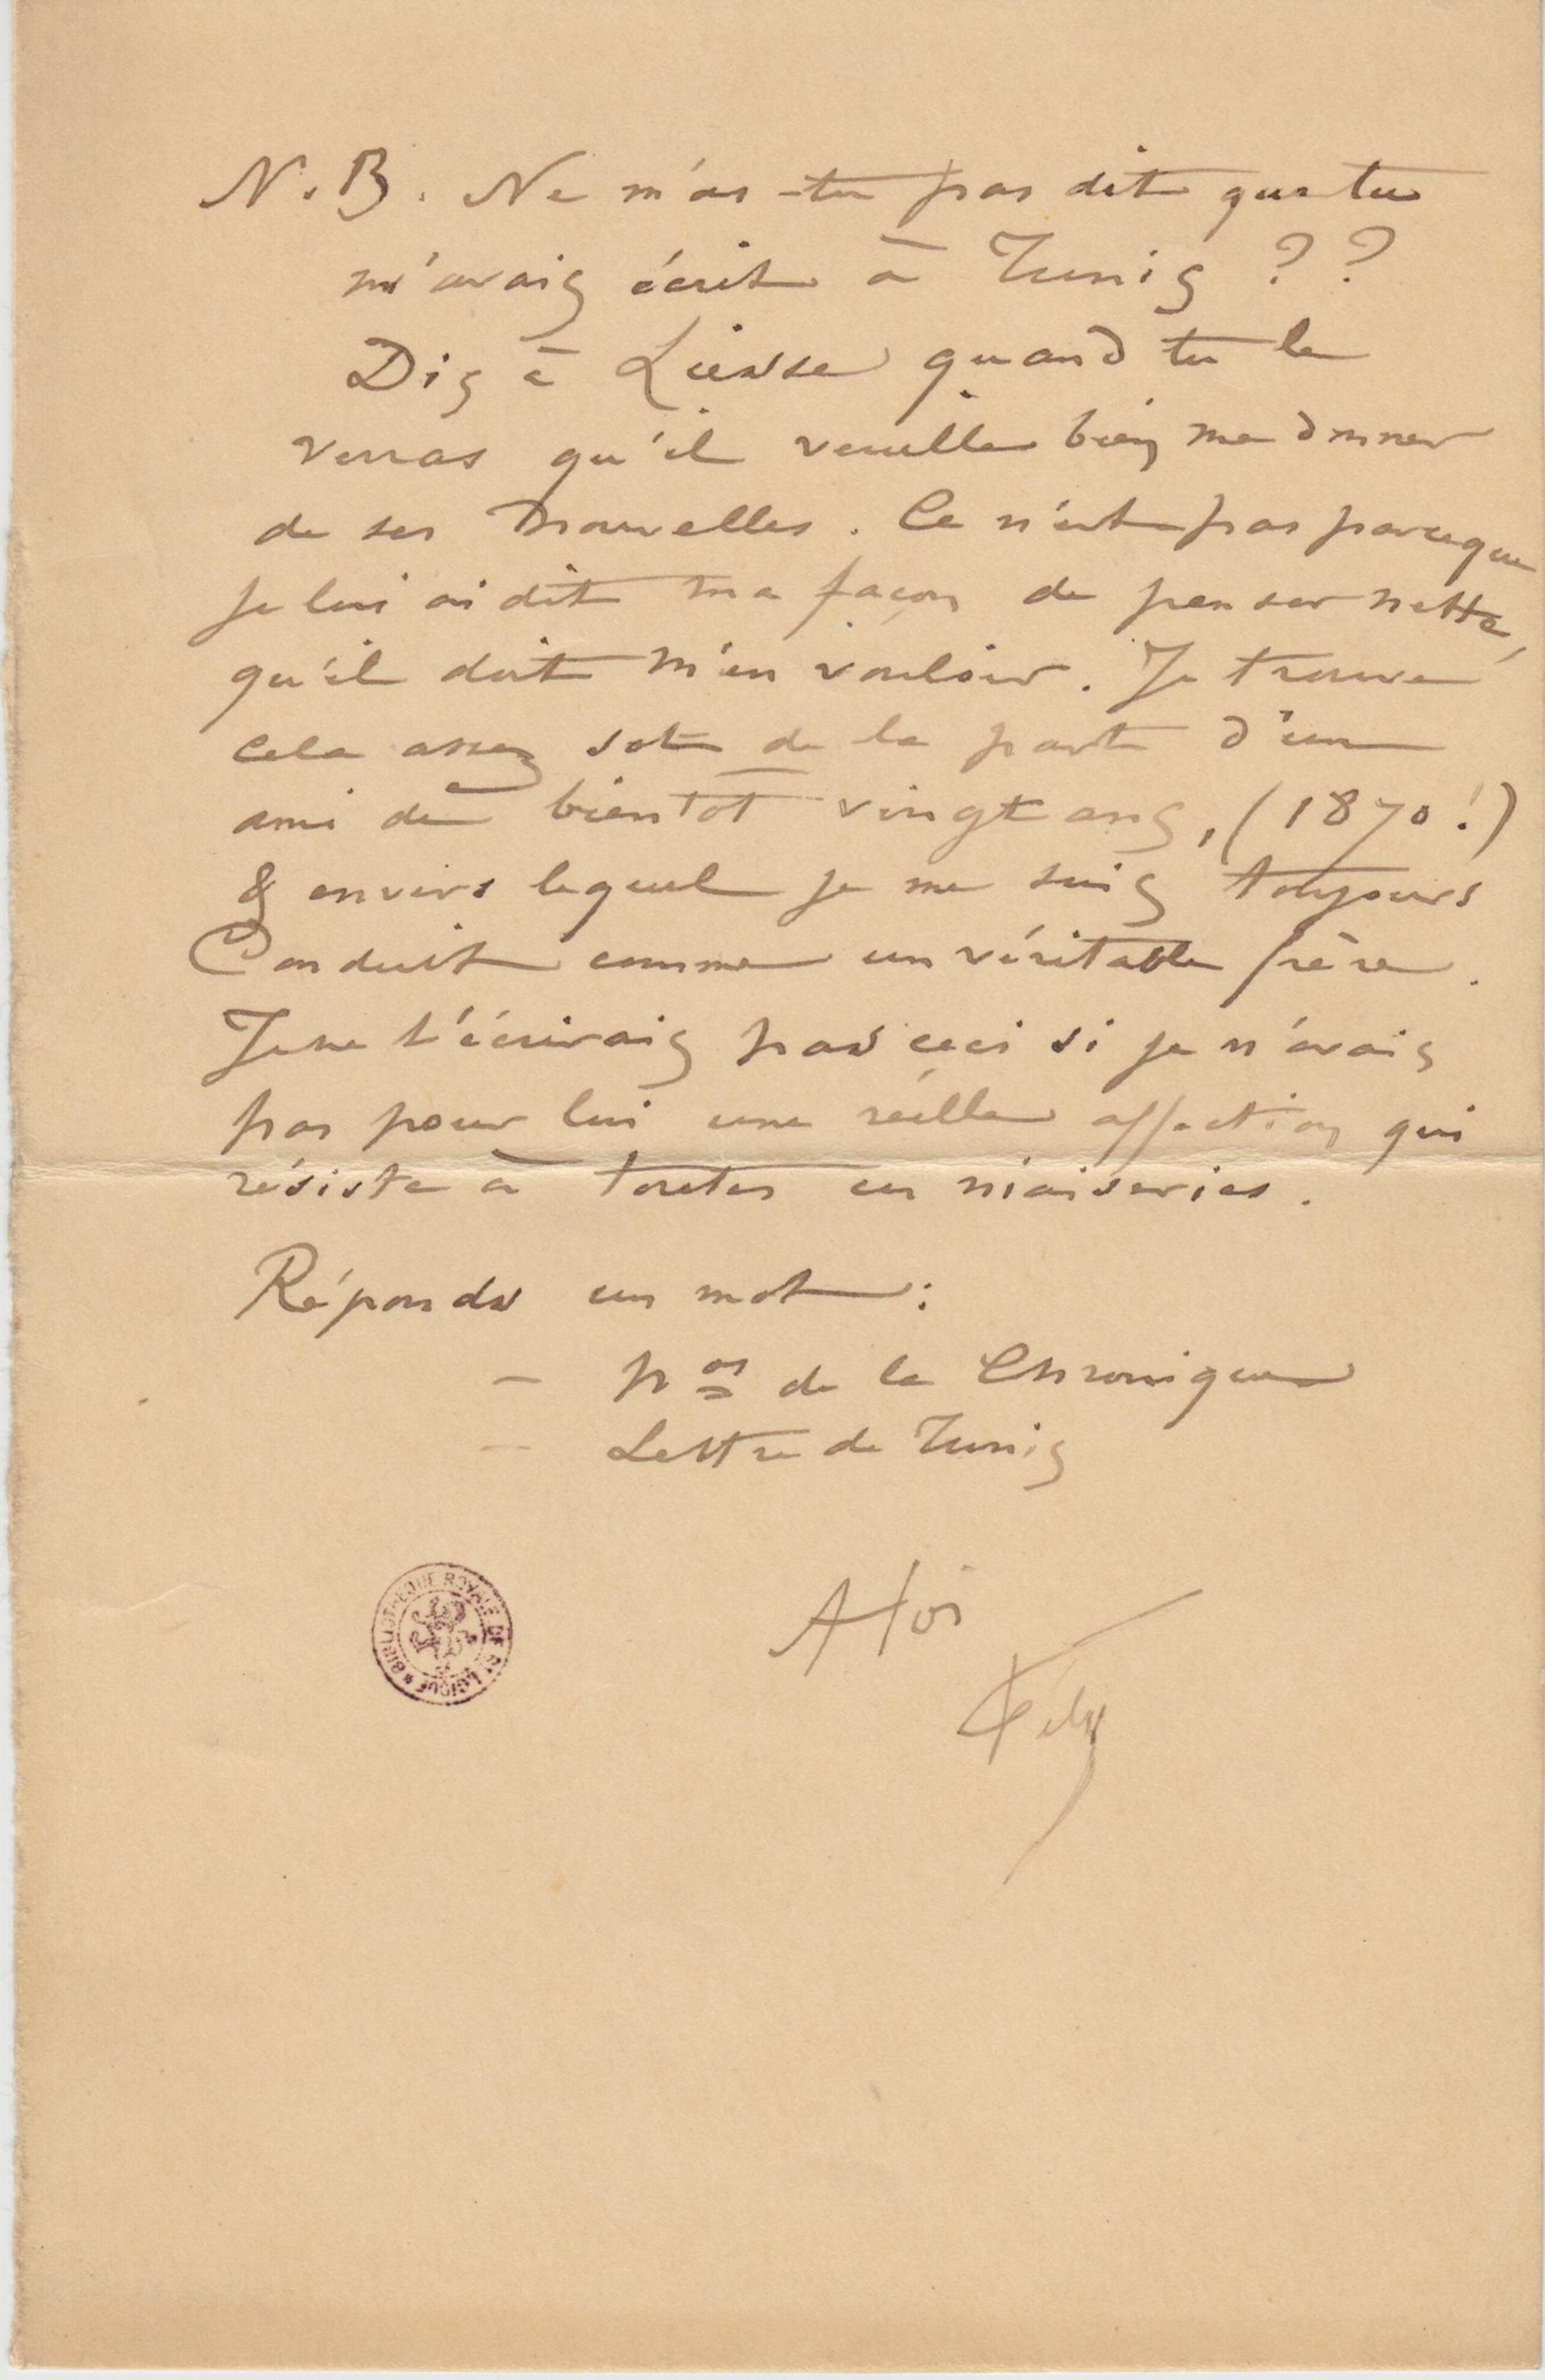 N.B. Ne m'as-tu pas dit que tu
m'avais écrit à Tunis ??
Dis à Liesse quand tu le
verras qu'il veuille bien me donner
de ses nouvelles. Ce n'est pas parceque
je lui ai dit ma façon de penser nette,
qu'il doit m'en vouloir. Je trouve
cela assez sot de la part d'un
ami de bientôt vingt ans, (1870!)
& envers lequel je me suis toujours
Conduit comme un véritable frère.
Je ne t'écrirais pas ceci si je n'avais
pas pour lui une réelle affection qui
résiste à toutes ces niaiseries.
Réponds un mot :
– nos de la Chronique
– Lettre de Tunis
BIBLIOTHÈQUE ROYALE DE BELGIQUE
A toi
Fély